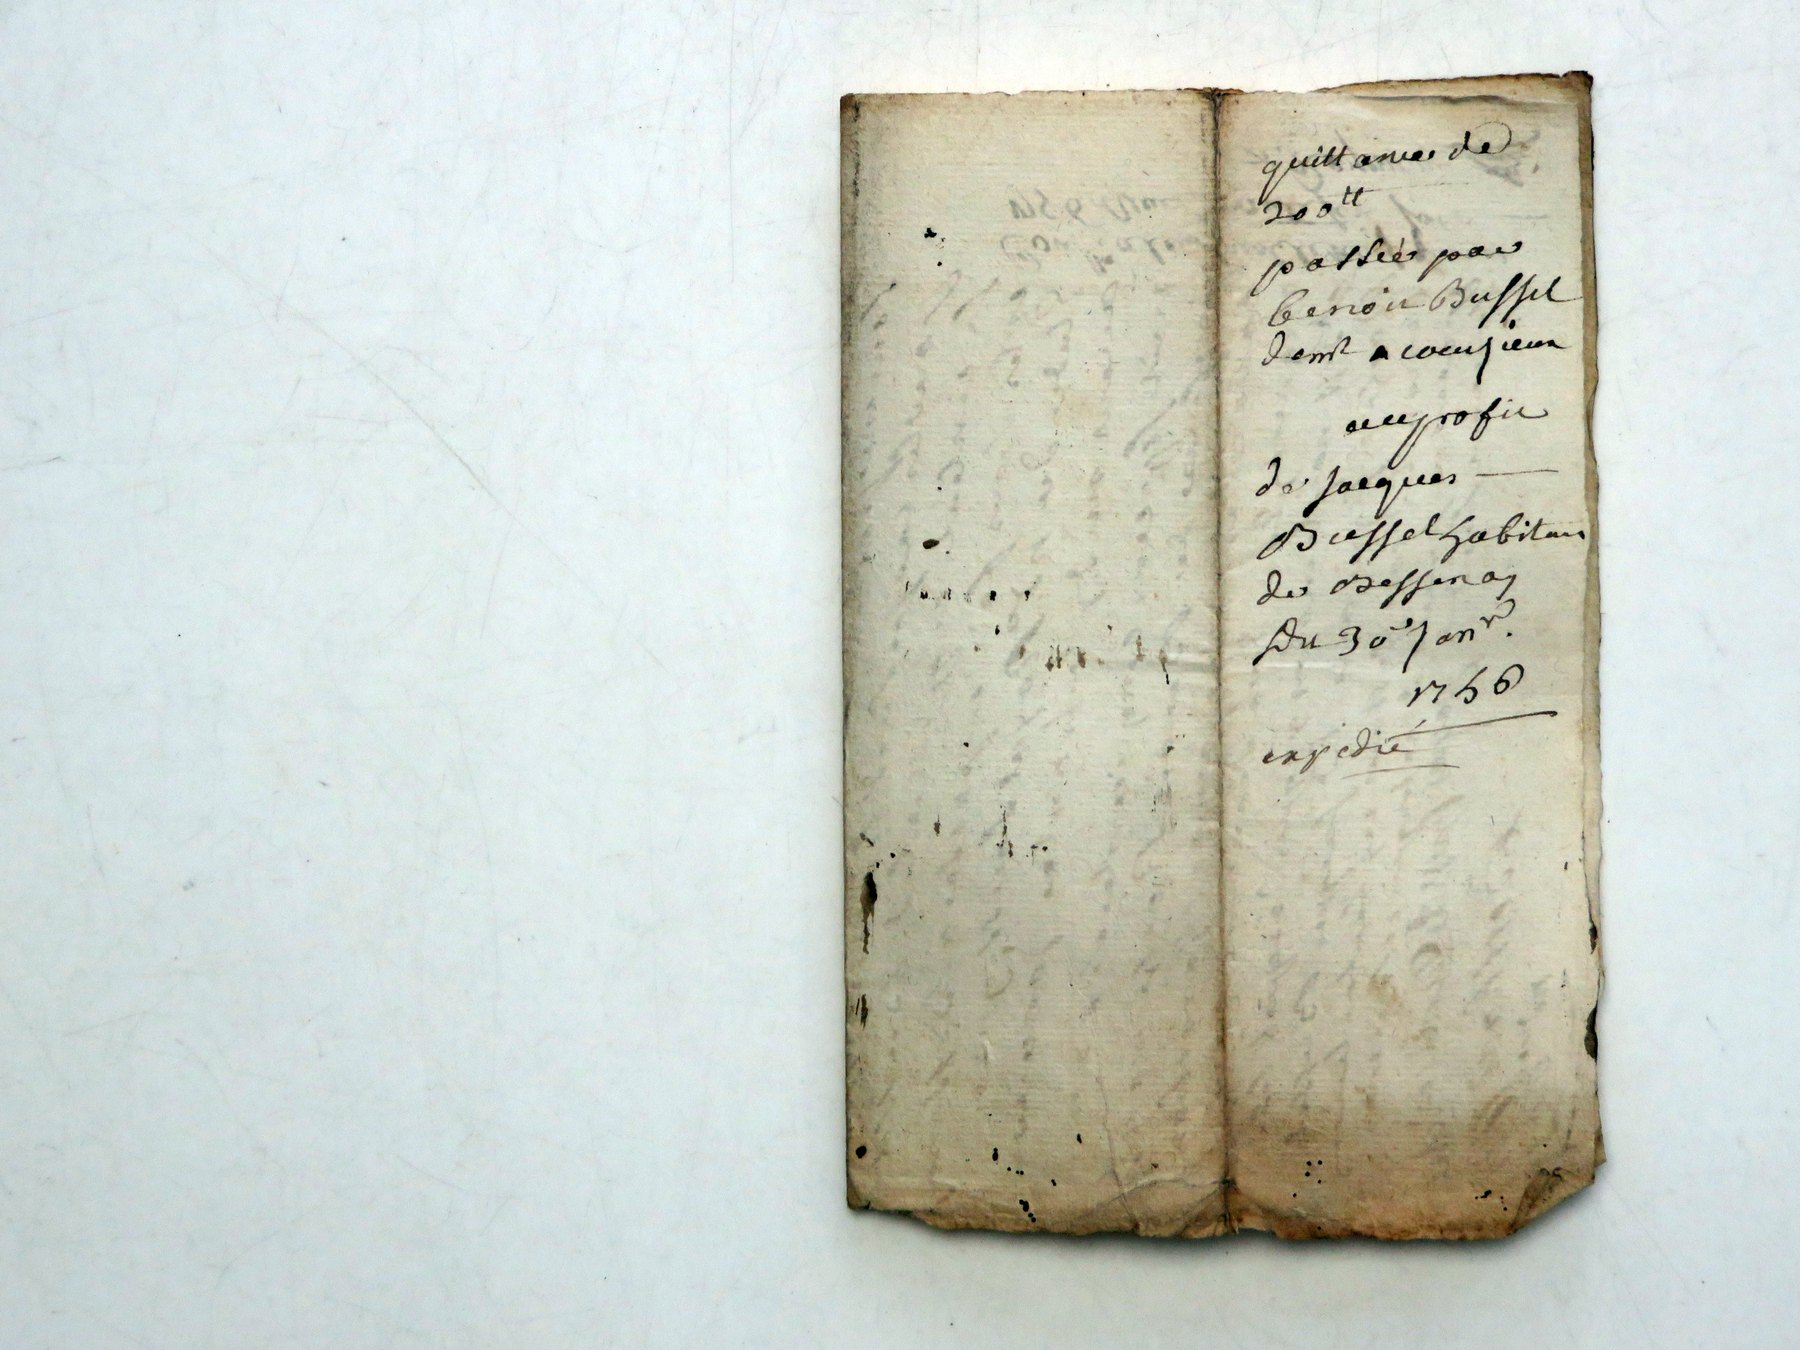 quittance de
200tt
passée par
benoit Bussel
demt a courzieu
au profit
de jacques
Bussel habitant
de Bessenay
Du 30e janvr.
1756
expedié